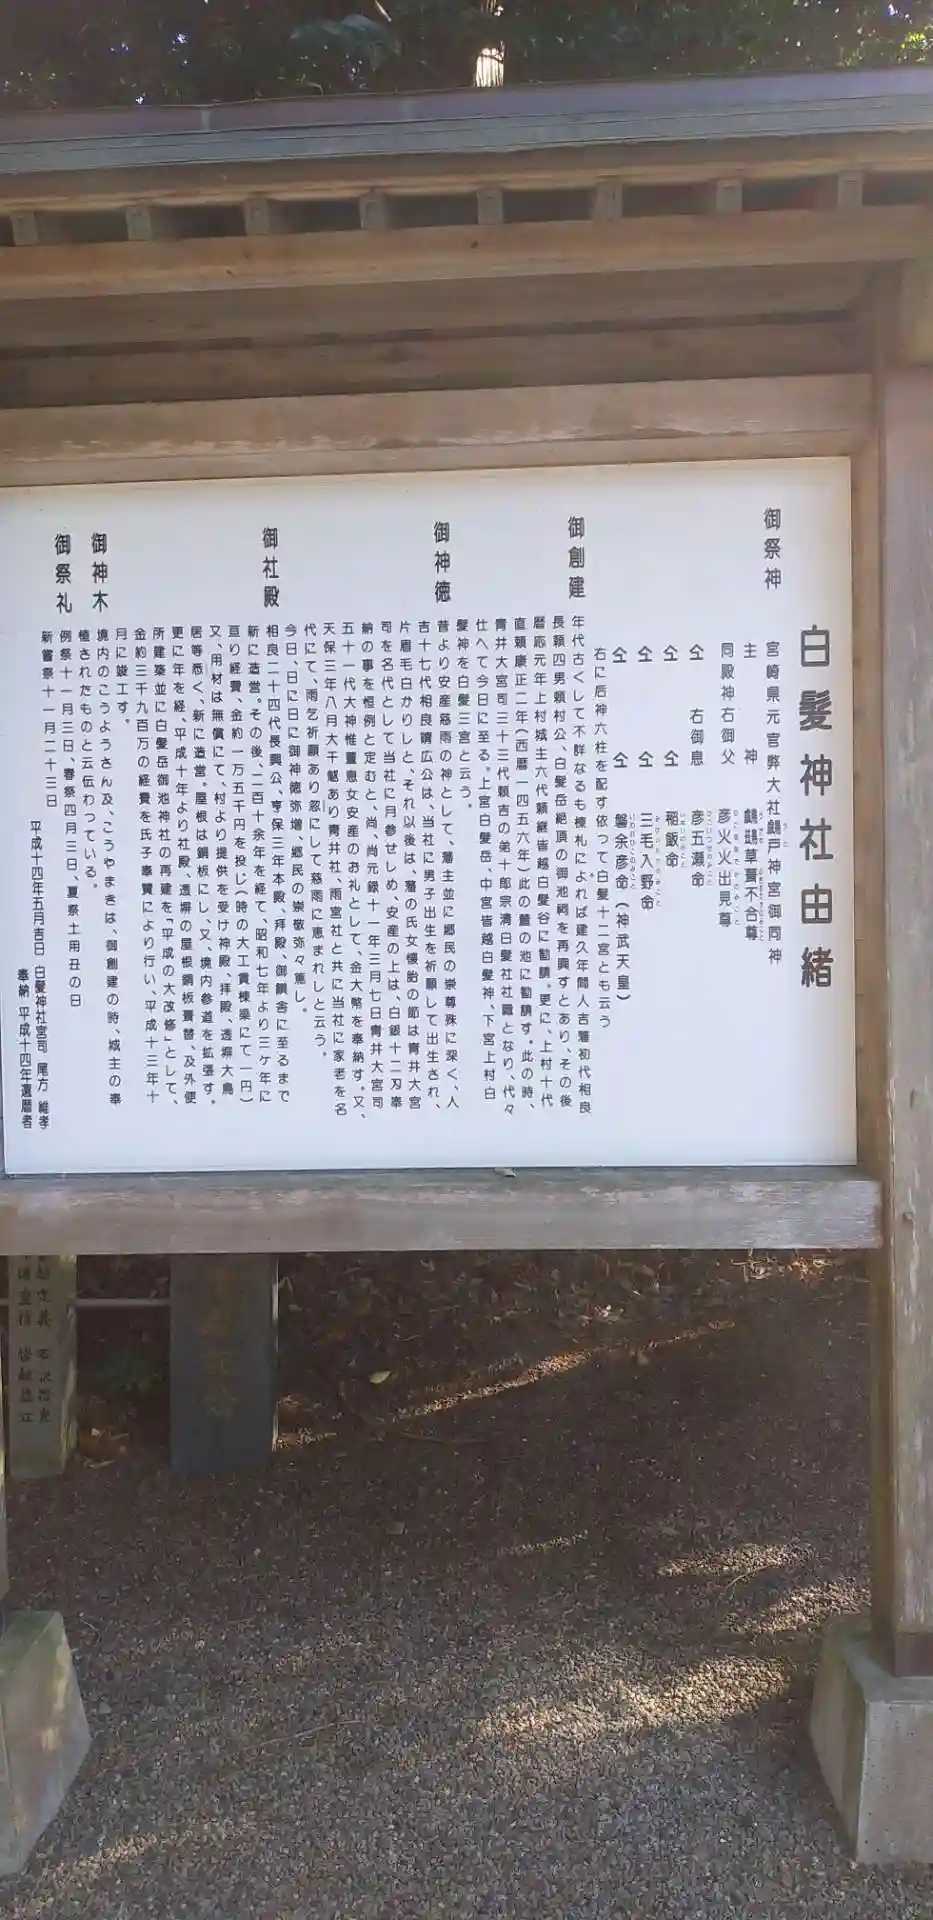 白髪神社由緒
御祭神
宮崎県元官弊大社鵜戸神宮御同神
主神 鵜鶿草葺不合尊
同殿神右御父 彦火火出見尊
仝 右御息 彦五瀬命
仝 仝 稲飯命
仝 仝 三毛入野命
仝 仝 磐余彦命(神武天皇)
右に后神六柱を配す依って白髪十二宮とも云う
御創建
年代古くして不詳なるも棟札によれば建久年間人吉藩初代相良
長頼四男頼村公、白髪岳絶頂の御池祠を再興すとあり、その後
暦応元年上村城主六代頼継皆越白髪谷に勧請。更に、上村十代
直頼康正二年(西暦一四五六年)此の萱の池に勧請す。此の時、
青井大宮司三十三代頼吉の弟十郎宗清白髪社社職となり、代々
仕へて今日に至る。上宮白髪岳、中宮皆越白髪神、下宮上村白
髪神を白髪三宮と云う。
御神徳
昔より安産慈雨の神として、藩主並に郷民の崇尊殊に深く、人
吉十七代相良晴広公は、当社に男子出生を祈願して出生され、
片眉毛白かりしと、それ以後は、藩の氏女懐胎の節は青井大宮
司を名代として当社に月参せしめ、安産の上は、白銀十二刃奉
納の事を恒例と定むと、尚、尚元録十一年三月七日青井大宮司
五十一代大神惟董恵女安産のお礼として、金大幣を奉納す。又、
天保三年八月大干魃あり青井社、雨宮社と共に当社に家老を名
代にて、雨乞祈願あり忽にして慈雨に恵まれしと云う。
今日、日に日に御神徳弥増、郷民の崇敬弥々篤し。
御社殿
相良二十四代長興公、亨保三年本殿、拝殿、御饌舎に至るまで
新に造営。その後、二百十余年を経て、昭和七年より三ケ年に
亘り経費、金約一万五千円を投じ(時の大工賃棟梁にて一円)
又、用材は無償にて、村より提供を受け神殿、拝殿、透塀大鳥
居等悉く、新に造営。屋根は銅板にし、又、境内参道を拡張す。
更に年を経、平成十年より社殿、透塀の屋根銅板葺替、及外便
所建築並に白髪岳御池神社の再建を「平成の大改修」として、
金約三千九百万の経費を氏子奉賛により行い、平成十三年十
月に竣工す。
御神木
境内のこうようさん及、こうやまきは、御創建の時、城主の奉
植されたものと云伝わっている。
御祭礼
例祭十一月三日、春祭四月三日、夏祭土用丑の日
新嘗祭十一月二十三日
平成十四年五月吉日 白髪神社宮司 尾方 維孝
奉納 平成十四年還暦者